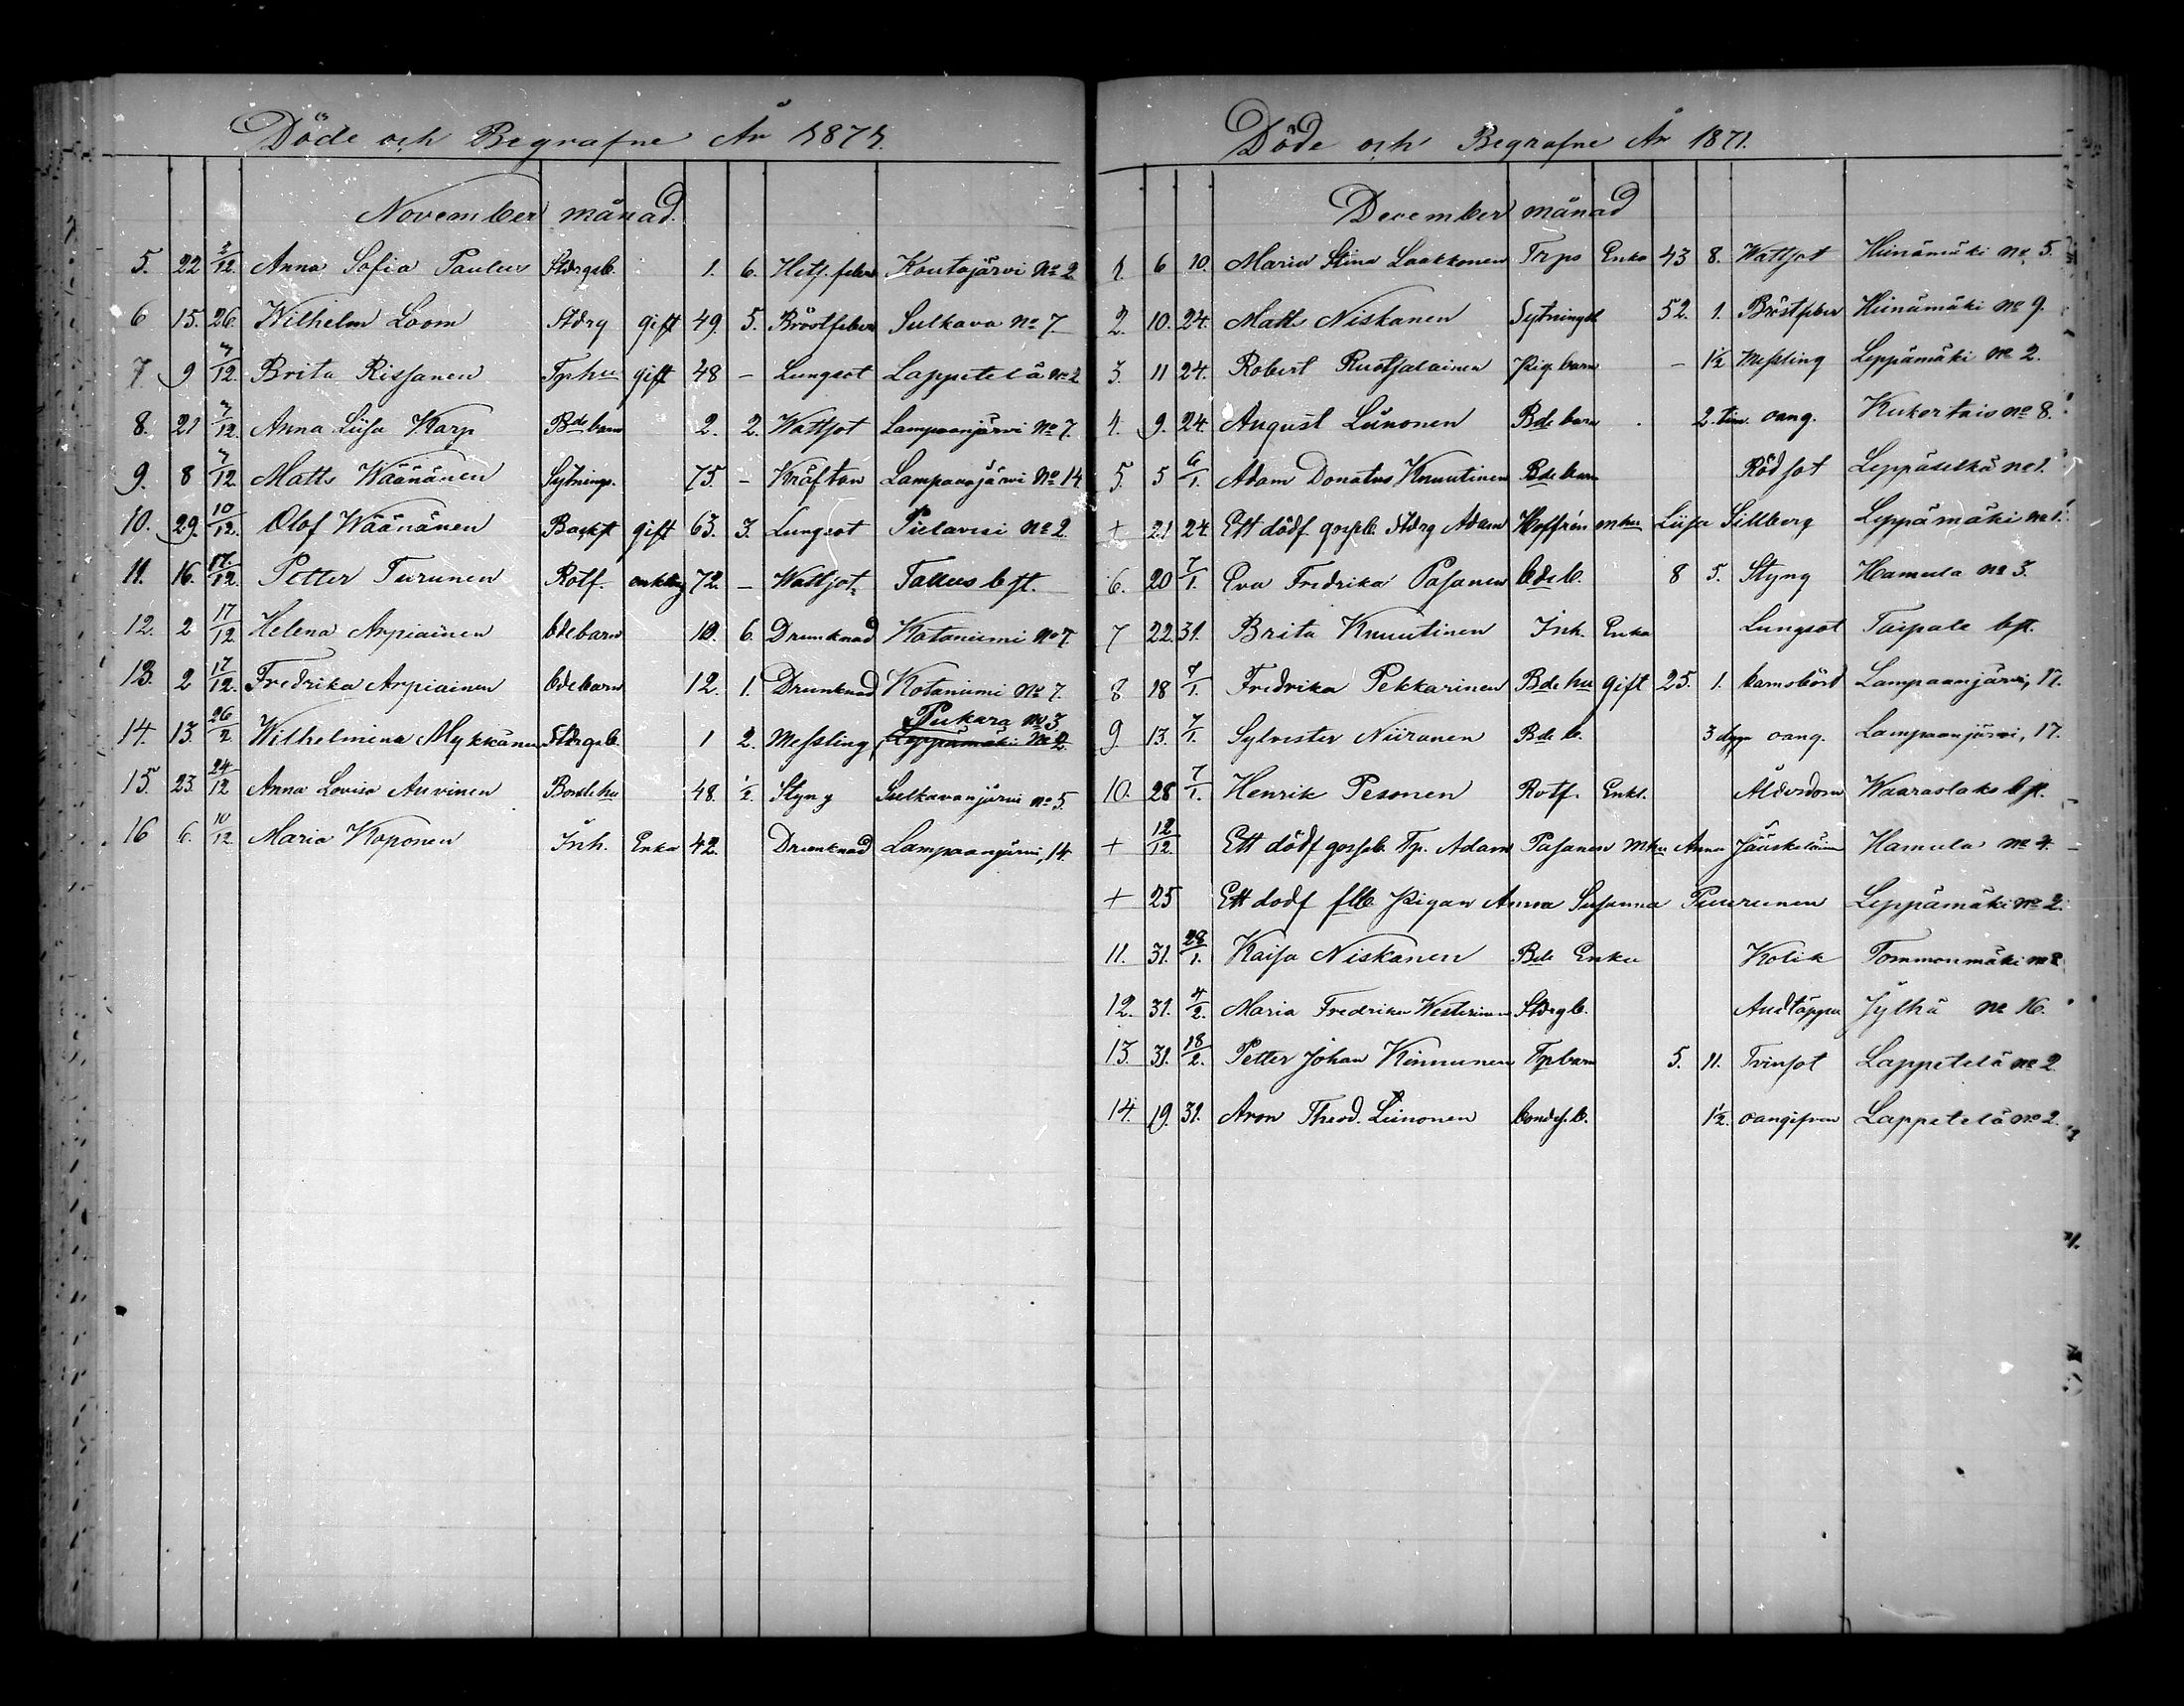 Döde och Begrafne År 1871.
November månad.
5. 22 3/12. Anna Sofia Paulus Stdrgsb. 1. 6. Hets. feber Koutajärvi No 2
6 15. 26. Wilhelm Loom Stdrg gift 49. 5. Bröstfeber Sulkava No 7
7 9 3/12. Brita Rissanen Tphu gift 48 – Lungsot Lappetelä No 2
8. 21 3/12. Anna Liisa Karp Bdebarn 2. 2. Wattsot Lampaanjärvi No 7.
9. 8 3/12 Matts Wäänänen Sytnings. 75. – Kräftan Lampaanjärvi No 14
10. 29. 10/12. Olof Wäänänen Backst gift 63. 3. Lungsot Pielavesi No 2
11. 16. 17/12. Petter Turunen Rotf. enkling 72. – Wattsot Tallus bst.
12. 2 17/12. Helena Arpiainen bdebarn 10. 6. Drunknad Kotaniemi No 7.
13. 2 17/12. Fredrika Arpiainen bdebarn 12. 1. Drunknad Kotaniemi No 7.
14. 13. 26/2. Wilhelmina Mykkänen Stdrgsb. 1 2. Messling Pukara No 3 Leppämäki No 2
15. 23. 24/12 Anna Lovisa Auvinen Bondehu 48. 1/2. Styng Sulkavanjärvi No 5.
16 6. 10/12 Maria Koponen Inh. Enka 42. Drunknad Lampaanjärvi, 14.
Döde och Begrafne År 1871.
December månad
1. 6 10. Maria Stina Laakkonen Trps Enka 43 8. Wattsot Hiinämäki No 5.
2. 10. 24. Matts Niskanen Sytningsk 52. 1. Bröstfeber Hiinämäki No 9.
3. 11 24. Robert Ruotsalainen Pig. barn – 1/2 Messling Leppämäki No 2.
4. 9. 24. August Liinonen Bdebarn 2. tim. oang. Kukertais No 8.
5. 5 6/1. Adam Donatus Knuutinen Bdebarn Rödsot Leppäselkä No 1.
+ 21 24. Ett dödf. gossb. Stdrg Adam Hoffrén m hu Liisa Sillberg Leppämäki No 1.
6. 20 7/1. Eva Fredrika Pasanen bdeb. 8 5. Styng Hamula No 3.
7 22. 31. Brita Knuutinen Inh. Enka Lungsot Taipale bst.
8 18 7/1. Fredrika Pekkarinen Bdehu gift 25. 1. barnsbörd Lampaanjärvi, 17.
9 13. 7/1. Sylvester Niiranen Bde b. 3 dgn oang. Lampaanjärvi, 17.
10. 28 7/1. Henrik Pesonen Rotf. Enkl. Ålderdom Waaraslaks bst.
+ 12/12. Ett dödf gossb. Tp. Adam Pasanen mhu Anna Jääskeläinen Hamula No 4.
+ 25 Ett dödf flb Pigan Anna Susanna Puurunen Leppämäki No 2.
11. 31. 28/1. Kaisa Niskanen Bde Enka Kolik Tommonmäki No 2
12. 31. 4/2. Maria Fredrika Westerinen Stdrgb. Andtäppa Jylhä No 16.
13. 31. 18/2. Petter Johan Kinnunen Tpbarn 5. 11. Tvinsot Lappetelä No 2
14. 19. 31. Aron Theod. Liinonen bondes.b. 1/2. oangifven Lappetelä No 2.